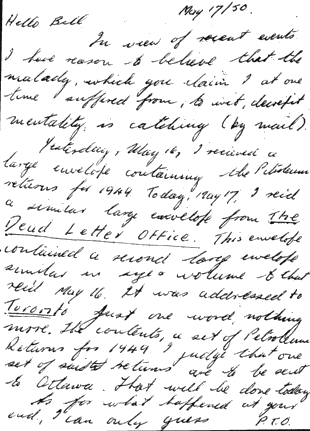 May 17/50.
Hello Bill
In view of recent events
I have reason to believe that the
malady, which you claim I at one
time suffered from, to wit, decrepit
mentality, is catching (by mail).
Yesterday, May 16, I received a
large envelope containing the Petroleum
returns for 1949. Today, May 17, I rec'd
a similar large envelope from The
Dead Letter Office. This envelope
contained a second large envelope
similar in size & volume to that
rec'd May 16. It was addressed to
Toronto just one word, nothing
more. The contents, a set of Petroleum
Returns for 1949. I judge that one
set of said returns are to be sent
to Ottawa. That will be done today
As for what happened at your
end, I can only guess P.T.O.